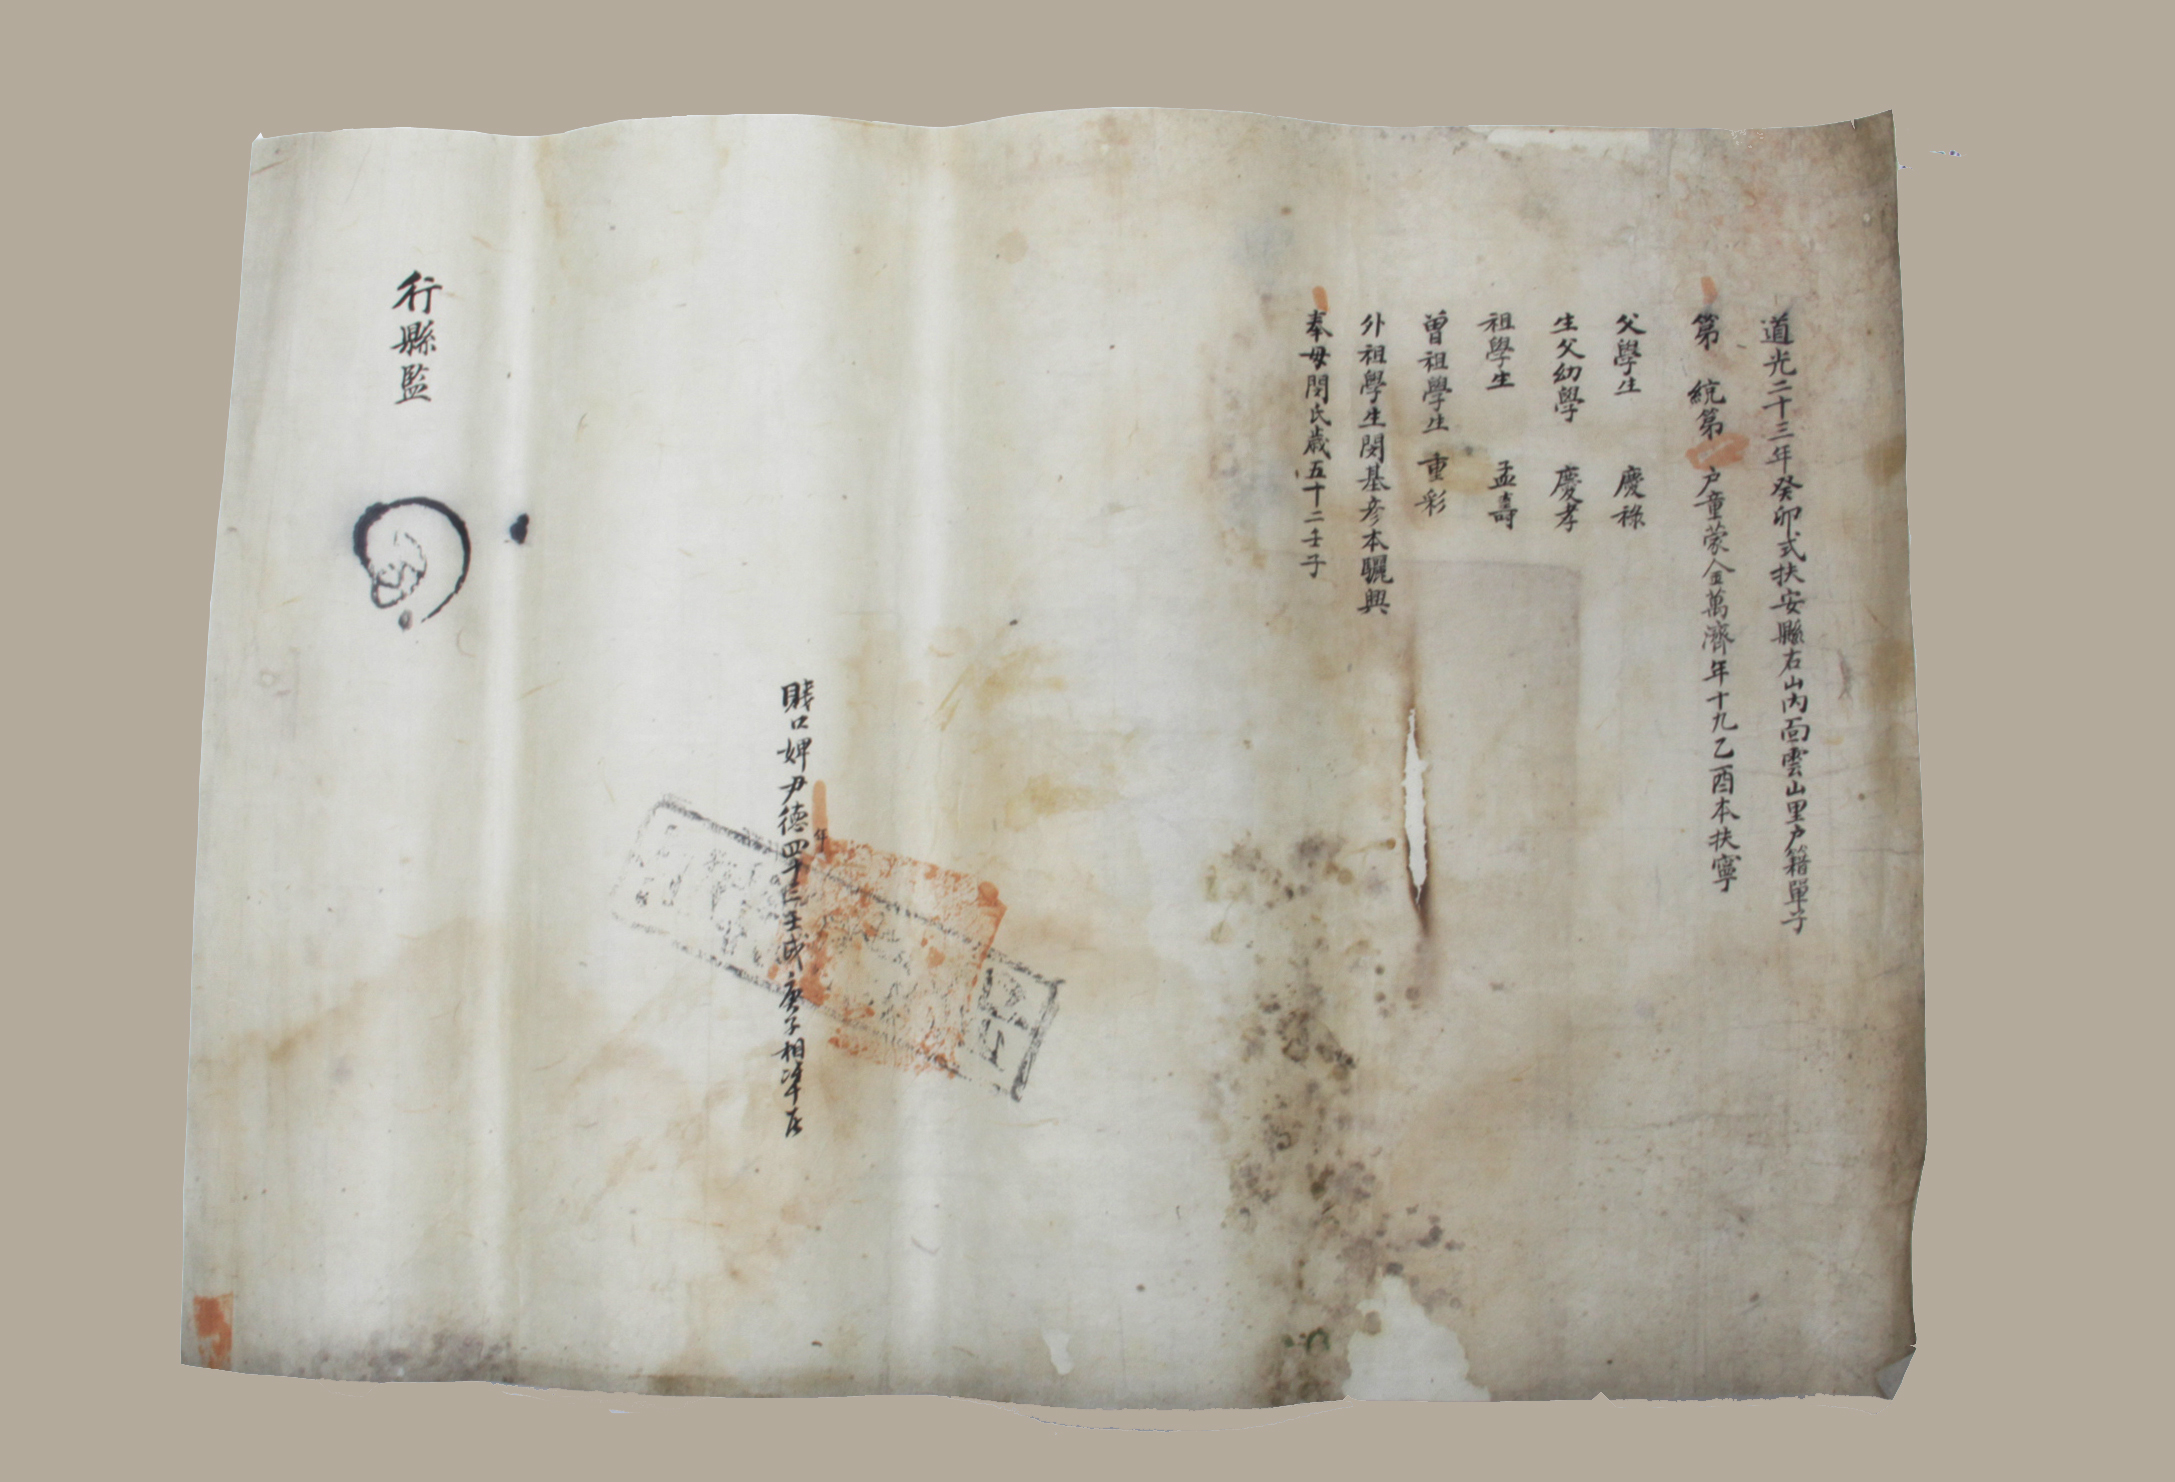 道光二十三年癸卯式扶安縣右山內面雲山里户籍單子
第 統第 户童蒙金萬濟年十九乙酉本扶寧
父學生 慶祿
生父幼學 慶孝
祖學生 孟壽
曾祖學生 重彩
外祖學生閔基彦本驪興
奉母閔氏歲五十二壬子
賤口婢尹德年四十二壬戌庚子相準在
行縣監